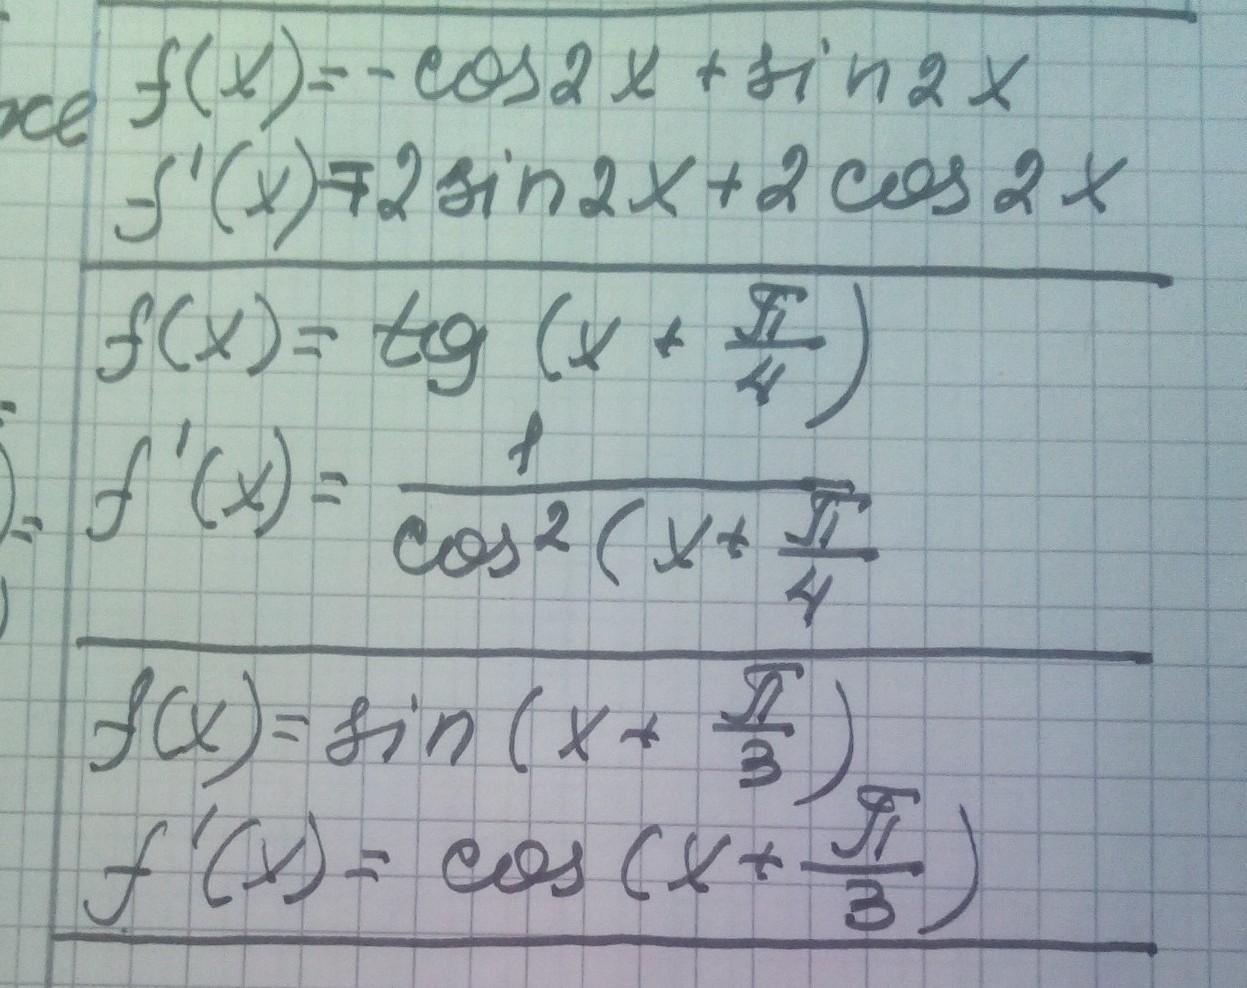 же
f(x)=-cos2x+sin2x
f'(x)=2sin2x+2cos2x
f(x)=tg(x+π/4)
f'(x)=1/cos²(x+π/4
)=
)
f(x)=sin(x+π/3)
f'(x)=cos(x+π/3)